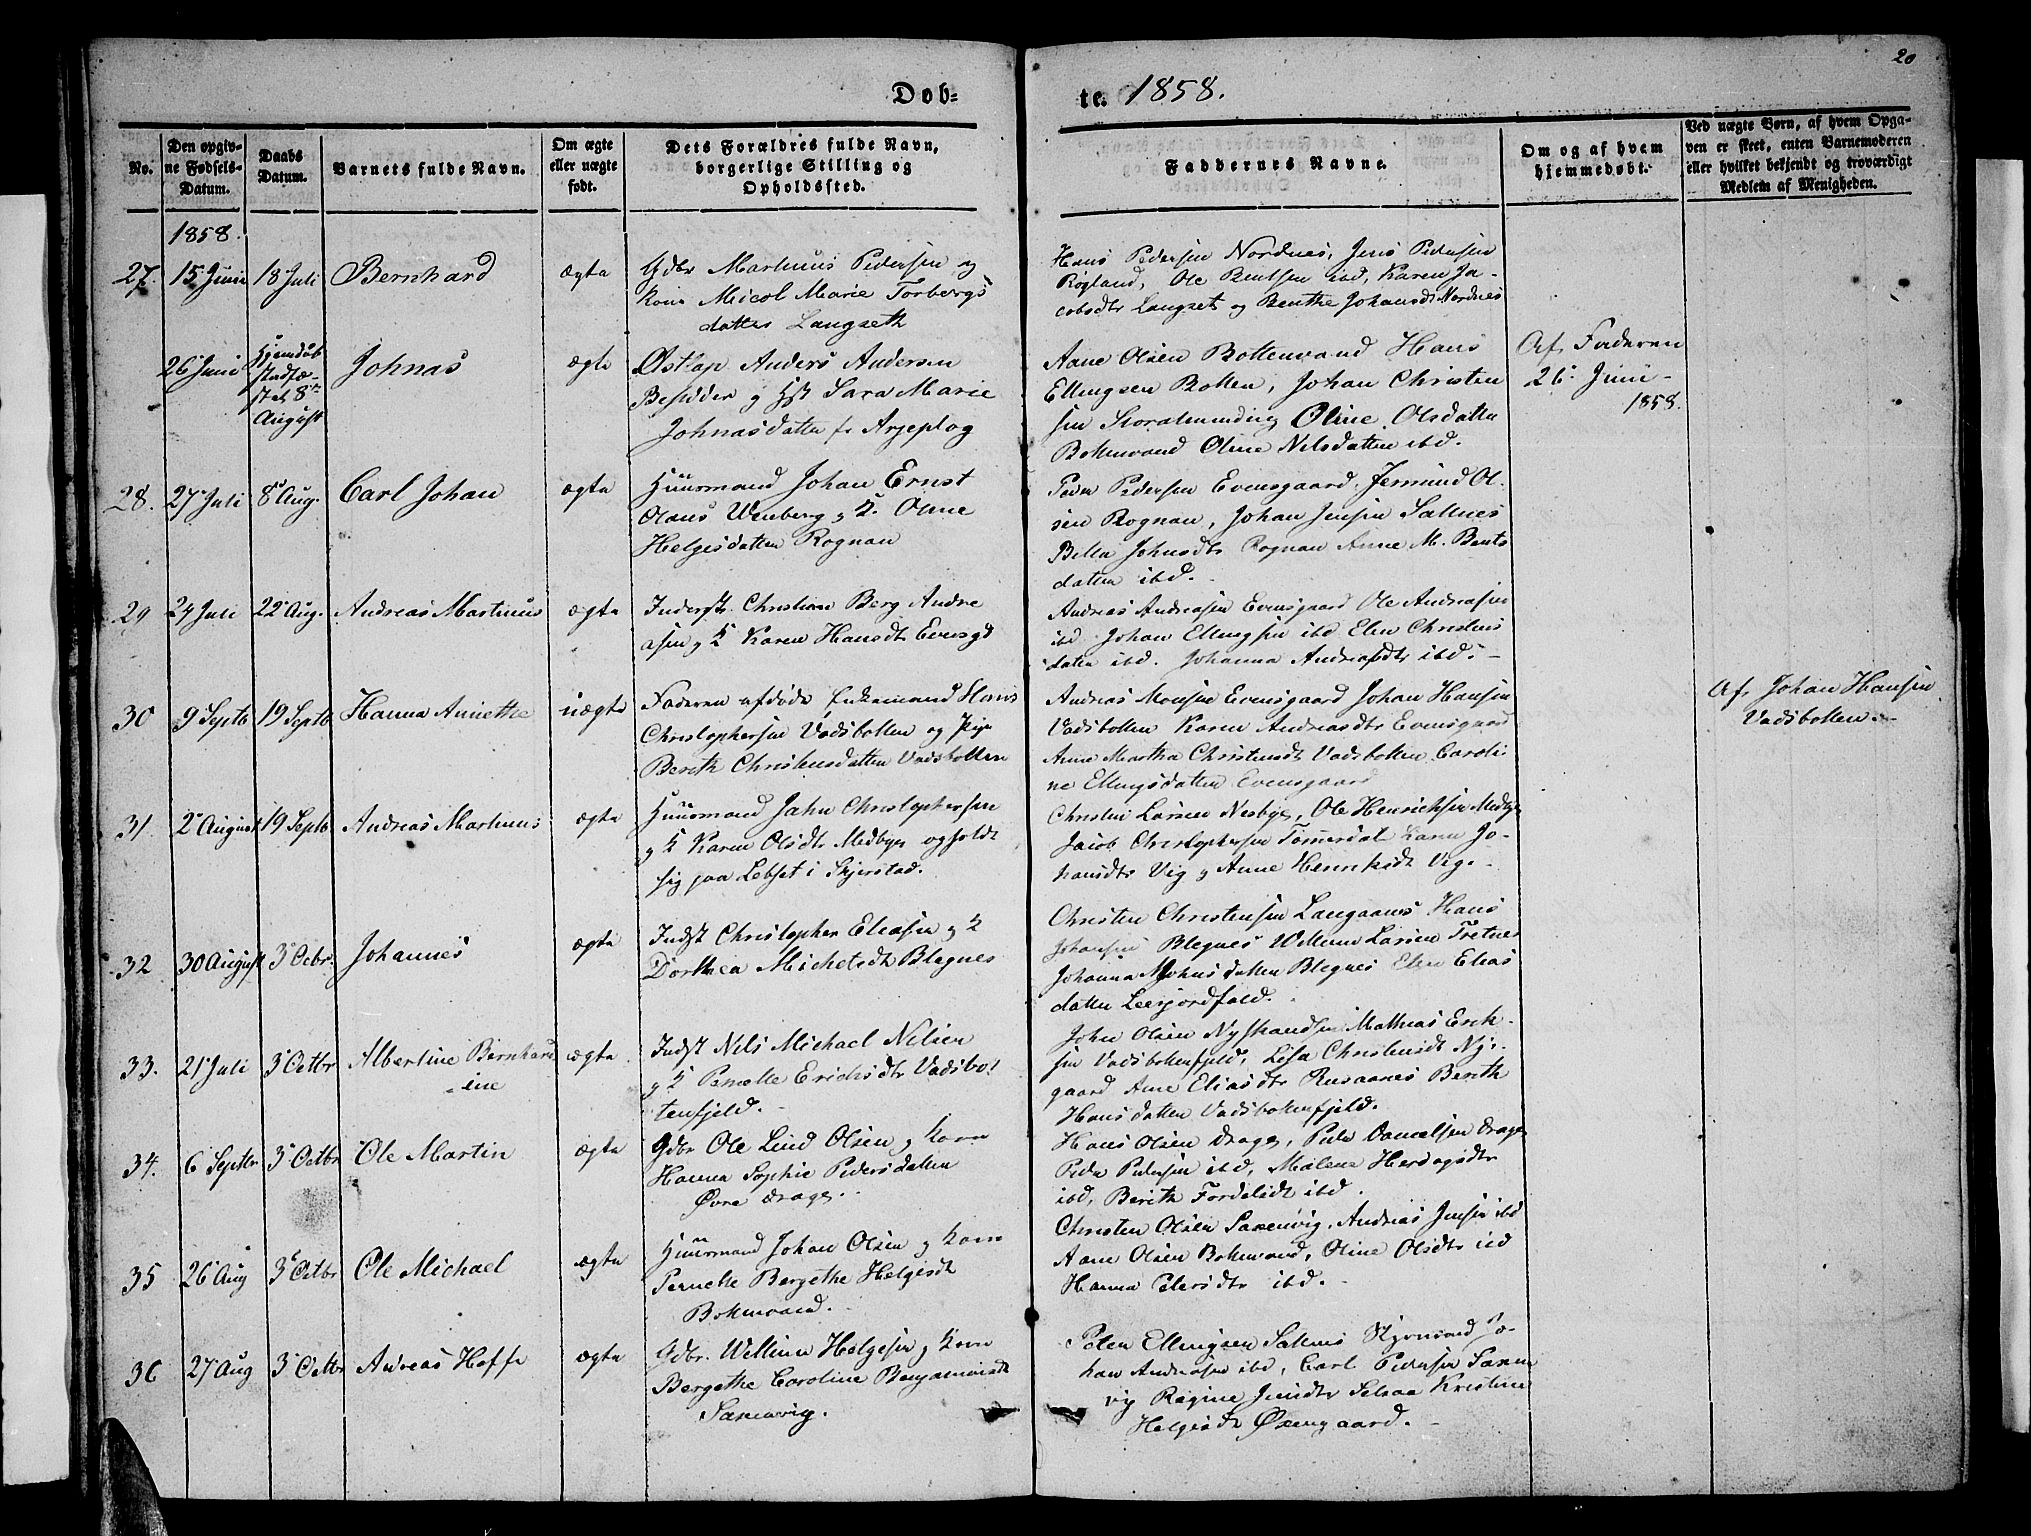 20
Døb=
te. 1858.
No.
Den opgiv-
ne Fødsels-
Datum.
Daabs
Datum.
Barnets fulde Navn.
Om ægte
eller uægte
født.
Dets Forældres fulde Navn,
borgerlige Stilling og
Opholdssted.
Faddernes Navne.
Om og af hvem
hjemmedøbt.
Ved uægte Børn, af hvem Opga-
ven er skeet, enten Barnemoderen
eller hvilket bekjendt og troværdigt
Medlem af Menigheden.
1858.
27. 15 Juni 18 Juli Bernhard ægte
Gdbr Martinus Pedersen og
Kone Micol Marie Torbergs
datter Langseth
Hans Pedersen Nordnes, Jens Pedersen
Røgland, Ole Bentsen ibd, Karen Ja-
cobsdtr Langset og Benthe Johansdt Nordnes
26 Juni
Hjemdøb
stadfæ-
stet 8de
August
Johnas ægte
Østlap Anders Andersen
Besidder og Hst Sara Marie
Johnasdatter fr Arjeplog
Aane Olsen Bottenvand Hans
Ellingsen Botten, Johan Christen
sen Storalmindig Oline Olsdatter
Bottenvand Oline Nilsdatter ibd.
Af Faderen
26 Juni
1858.
28. 27 Juli 8 Aug. Carl Johan ægte
Huusmand Johan Ernst
Olaus Wenberg og K. Oline
Helgesdatter Rognan
Peder Pedersen Evensgaard, Jermund Ol-
sen Rognan, Johan Jensen Saltnes
Johnsdtr Rognan Anne M. Bents
datter ibd.
29 24 Juli 22 Aug. Andreas Martinus ægte
Inderst Christian Berg Andre
asen og K Karen Hansdtr Evensgd
Andreas Andreasen Evensgaard Ole Andreasen
ibd Johan Ellingsen ibd Elen Christens
datter ibd. Johanna Andreasdtr ibd.
30 9 Septb 19 Septb Hanna Annethe uægte
Faderen afdøde Enkemand Hans
Christophersen Vadsbotten og Pige
Berith Christensdatter Vadsbotten
Andreas Monsen Evensgaard Johan Hansen
Vadsbotten Karen Andreasdtr Evensgaard
Anne Martha Christensdt Vadsbotten Caroli
ne Ellingsdatter Evensgaard
Af Johan Hansen
Vadsbotten
31. 2 August 19 Septb Andreas Martinus ægte
Huusmand Jahn Christophersen
og K Karen Olsdtr Medbye opholdt
sig paa Lebset i Skjerstad.
Christen Larsen Nesbye, Ole Henrichsen Medbye
Jacob Christophersen Tømerdal Karen Jo-
hansdtr Vig og Anne Henriksdt Vig.
32 30 August 3 Octbr. Johannes ægte
Indst Christopher Eliasen og K
Dorthea Michelsdt Blegnes
Christen Christensen Langaanes Hans
Johansen Blegnes Willum Larsen Tretnes
Johanna Johnsdatter Blegnes Elen Elias
datter Leerjordfald.
33. 21 Juli 3 Octbr Albertine Bernhard
ine ægte
Indst Nils Michael Nilsen
og K Pernelle Erichsdtr Vadsbot
tenfjeld.
John Olsen Mathias Erik-
sen Vadsbottenfjeld, Lisa Christensdt Ny-
gaard Ane Eliasdtr Rusaanes Berith
Hansdatter Vadsbottenfjeld.
34. 6 Septbr 3 Octbr Ole Martin ægte
Gdbr Ole Lund Olsen og Kone
Hanna Sophie Pedersdatter
Øvre Drage.
Hans Olsen Drage, Peder Danielsen Drage
Peder Pedersen ibd, Malene Herdagsdtr
ibd, Berith Fordelsdt ibd.
35 26 Aug 3 Octbr Ole Michael ægte
Huusmand Johan Olsen og Kone
Pernelle Bergethe Helgesdt
Bottenvand.
Christen Olsen Saxenvig, Andreas Jensen ibd
Aane Olsen Bottenvand, Oline Olsdtr ibd
Hanna Petersdtr ibd.
36 27 Aug 3 Octbr Andreas Hoffe ægte
Gdbr. Willum Helgesen og Kone
Bergethe Caroline Benjaminsdt
Saxenvig.
Peter Ellingsen Saltnes Jo-
han Andreasen ibd, Carl Pedersen Saxen
vig Regine Jensdtr Setsaa Kristine
Helgesdt Øxengaard.